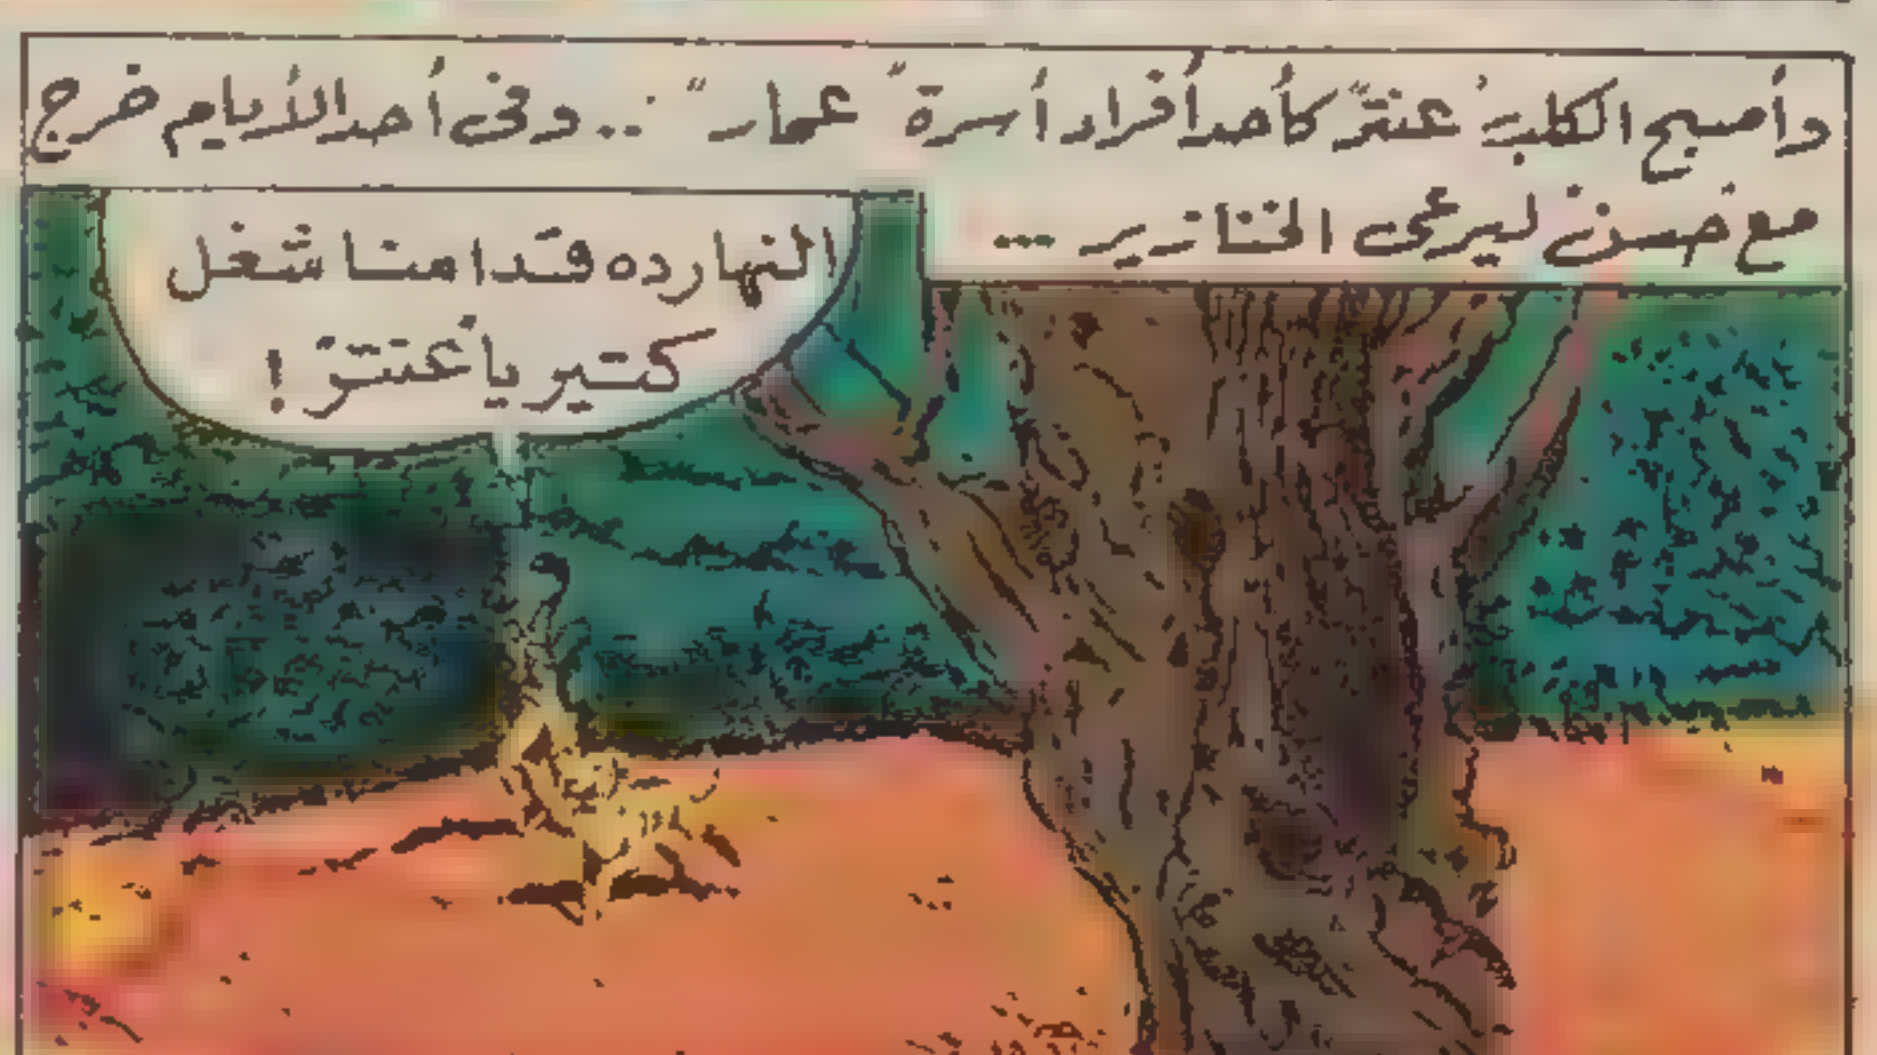 وأصبح الكلب "عنتر" كأحد أفراد أسرة "عمار" .. وفى أحد الأيام خرج
مع حسن ليرعى الخنازير ...
النهارده قدامنا شغل
كتير يا عنتر !